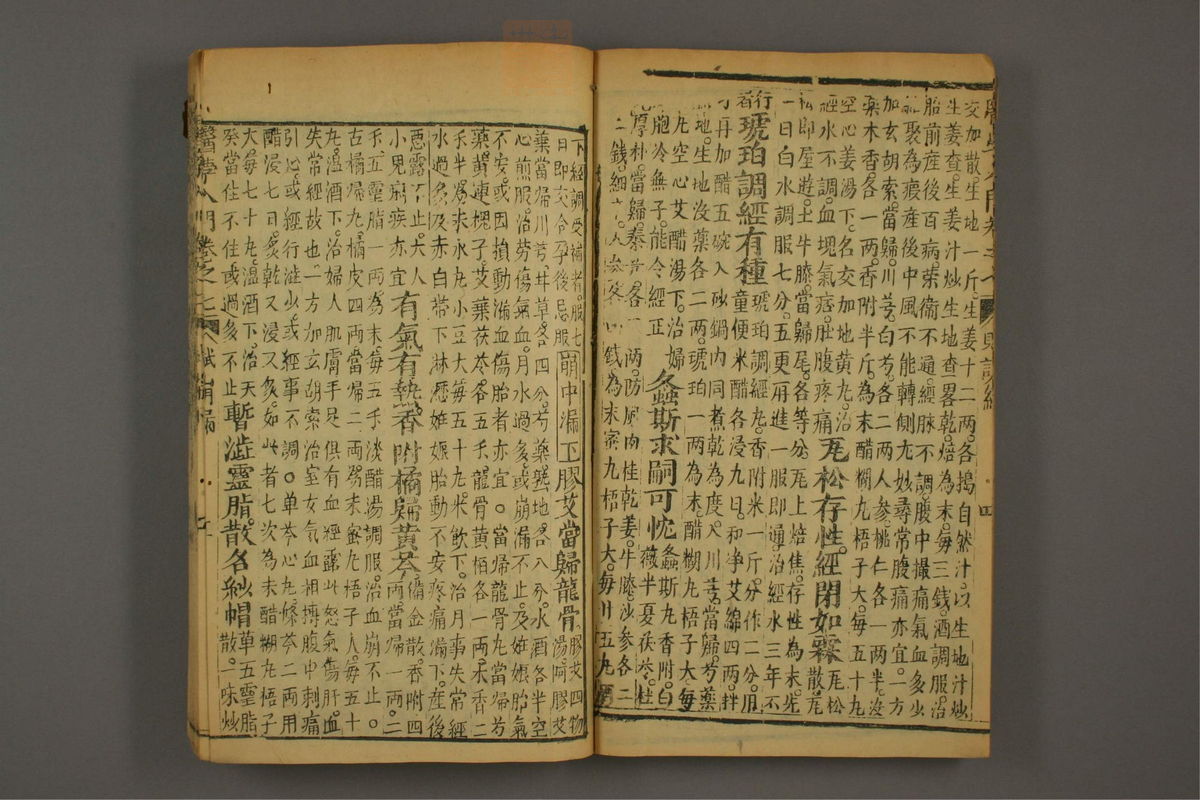 交加散生地一斤生姜十二兩各搗自然汁以生地汁炒
生姜查生姜汁炒生地查畧乾焙為末每三錢酒調服治
胎前産後百病榮衛不通經脉不調腹中撮痛氣血多少
結聚為瘕産後中風不能轉側尤妙尋常腹痛亦宜一方
加玄胡索當歸川芎白芍各二兩人參桃仁各一兩半沒
藥木香各一兩香附半斤為末醋糊丸梧子大每五十丸
空心姜湯下名交加地黄丸治
經水不調血塊氣痞肚腹疼痛
瓦松存性經閉如霖
散瓦松
松即屋遊土牛膝當歸尾各等分瓦上焙焦存性為末先
一日白水調服七分五更再進一服即通治經水三年不
行者
琥珀調經有種
琥珀調經丸香附米一斤分作二分用
童便米醋各浸九日和淨艾綿四兩拌
勻再加醋五碗入砂鍋内同煮乾為度入川芎當歸芍藥
熟地生地沒藥各二兩琥珀一兩為末醋糊丸梧子大每
丸空心艾醋湯下治婦
胞冷無子能令經正
螽斯求嗣可忱
螽斯丸香附白
薇半夏茯苓杜
厚朴當歸秦艽各 兩防風肉桂乾姜牛膝沙參各二
二錢細 人參各四錢為末蜜丸梧子大每卅五丸酒
下經調受補者服七
日即交合孕後忌服
崩中漏下
膠艾當歸龍骨
膠艾四物
湯阿膠艾
葉當歸川芎甘草各四分芍藥熟地各八分水酒各半空
心煎服治勞傷氣血月水過多或崩漏不止及姙娠胎氣
不安或因損動漏血傷胎者亦宜 當歸龍骨丸當歸芍
藥黄連槐子艾葉茯苓各五手龍骨黄栢各一兩木香二
手半為末水丸小豆大每五十丸米飲下治月事失常經
水過多及赤白帶下淋瀝姙娠胎動不安疼痛漏下産後
惡露不止大人
小兒痢疾亦宜
有氣有熱香附橘歸黄芩
備金散香附四
兩當歸一兩二
手五靈脂一兩為末每五手淡醋湯調服治血崩不止
古橘歸丸橘皮四兩當歸二兩為末蜜丸梧子人每五十
丸温酒下治婦人肌膚手足俱有血經露此怒氣傷肝血
失常經故也一方加玄胡索治室女氣血相搏腹中刺痛
引心或經行澁少或經事不調 單芩心丸條芩二兩用
醋浸七日炙乾又浸又炙如此者七次為末醋糊丸梧子
大每七十丸温酒下治天
癸當住不住或過多不止
暫澁靈脂散名紗帽
單五靈脂
散一味炒
醫學入門卷之七